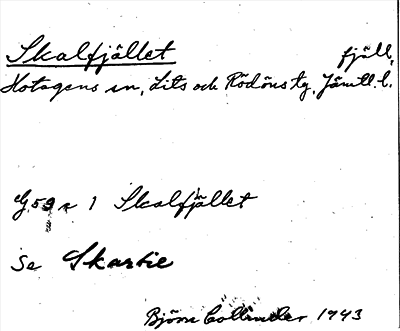 Skalfjället fjäll,
Hotagens sn, Lits och Rödöns tg, Jämtl. l.
59 1 Skalfjället
Se Skartie
Björn Collinder 1943